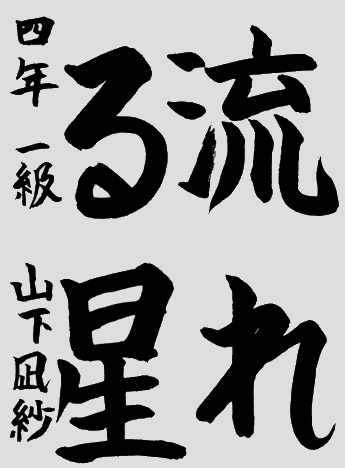 流れ
る星
四年 一級 山下凪紗